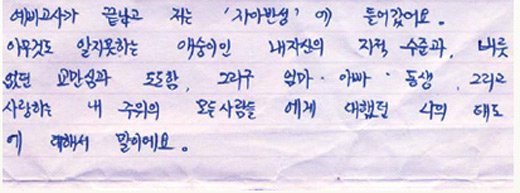 예비고사가 끝나고 저는 '자아반성' 에 들어갔어요.
아무것도 알지못하는 애숭이인 내자신의 지적 수준과, 버릇
없던 교만심과 도도함, 그리구 엄마·아빠·동생, 그리고
사랑하는 내 주위의 모든사람들 에게 대했던 나의 태도
에 대해서 말이에요.